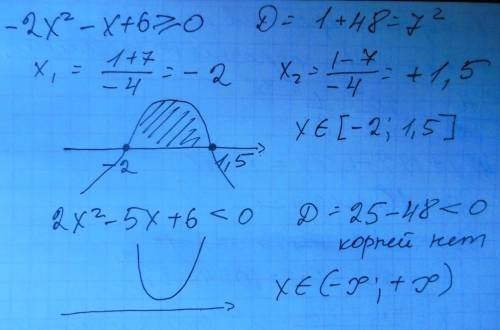 -2x² - x + 6 ≥ 0    D = 1 + 48 = 7²
x₁ = (1+7)/(-4) = -2    x₂ = (1-7)/(-4) = +1,5
x ∈ [-2; 1,5]
-2    1,5
2x² - 5x + 6 < 0    D = 25 - 48 < 0
корней нет
x ∈ (-∞; +∞)